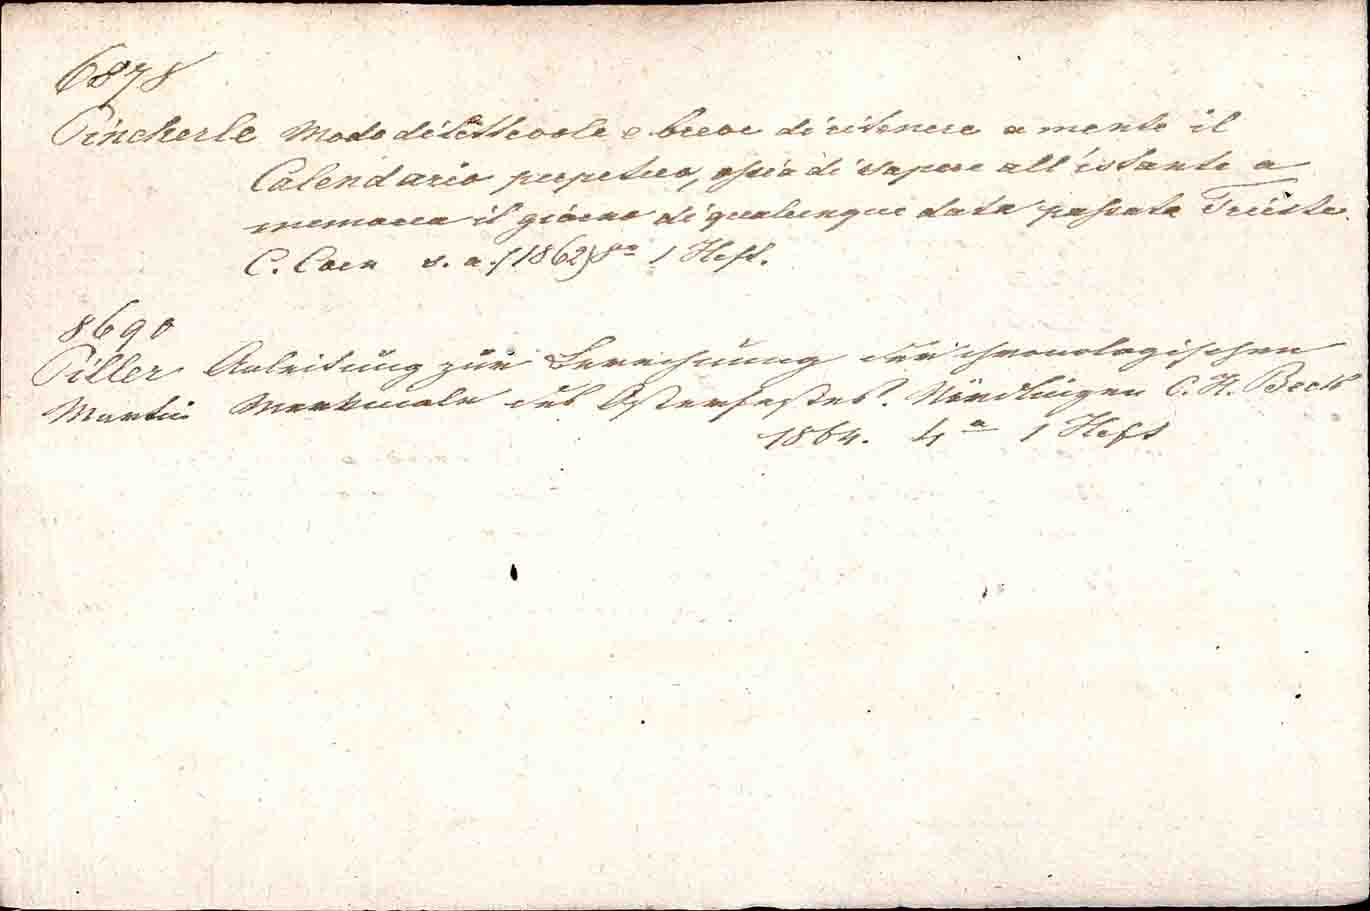 6878
Pincherle Modo dilettevole e breve di ritenere a mente il
Calendario perpetuo, ossia di sapere all'istante a
memoria il giorno di qualunque data passata Trieste.
C. Coen s. a. (1862) 8º 1 Heft.
8690
Piller Anleitung zur Berechnung der chronologischen
Martin Merkmale des Osterfestes. Nördlingen C. H. Beck
1864. 4º 1 Heft